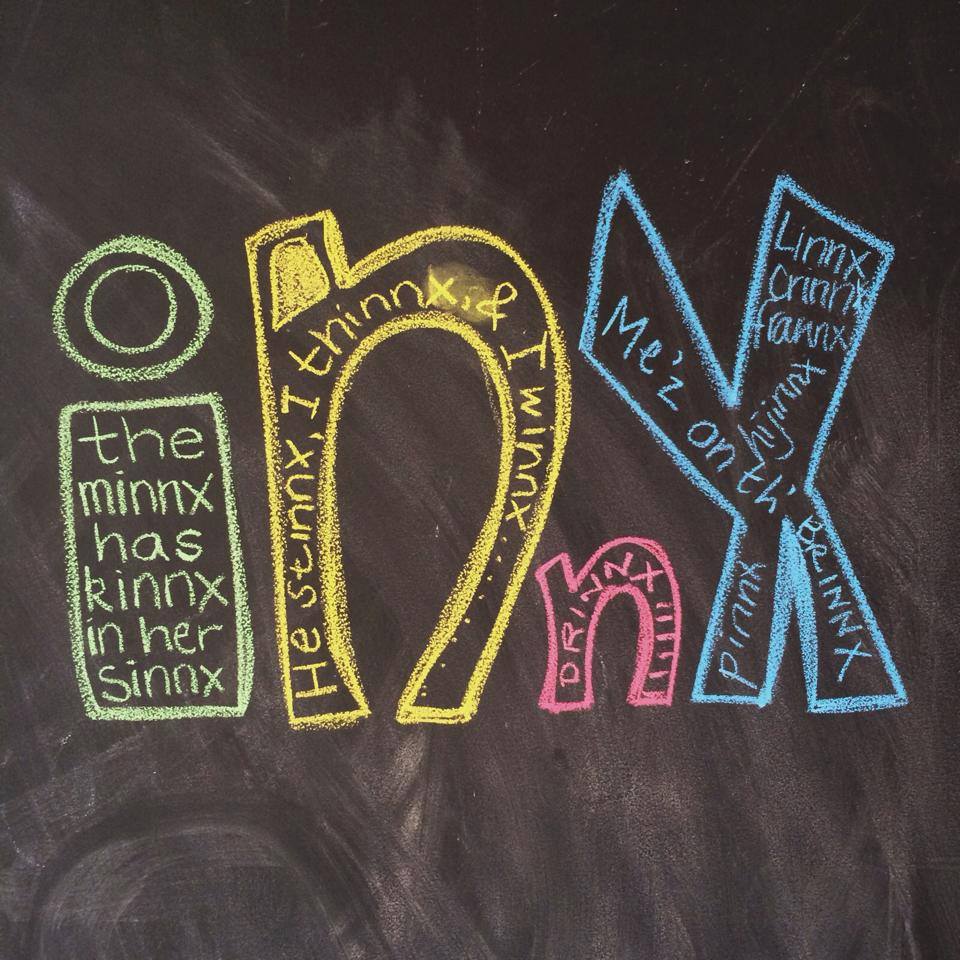 innx
the
minnx
has
kinnx
in her
sinnx
He stinnx, I thinnx, & I winnx...
DRINNX
Me'z on th'
BRINNX
Linnx
frannx
pinnx